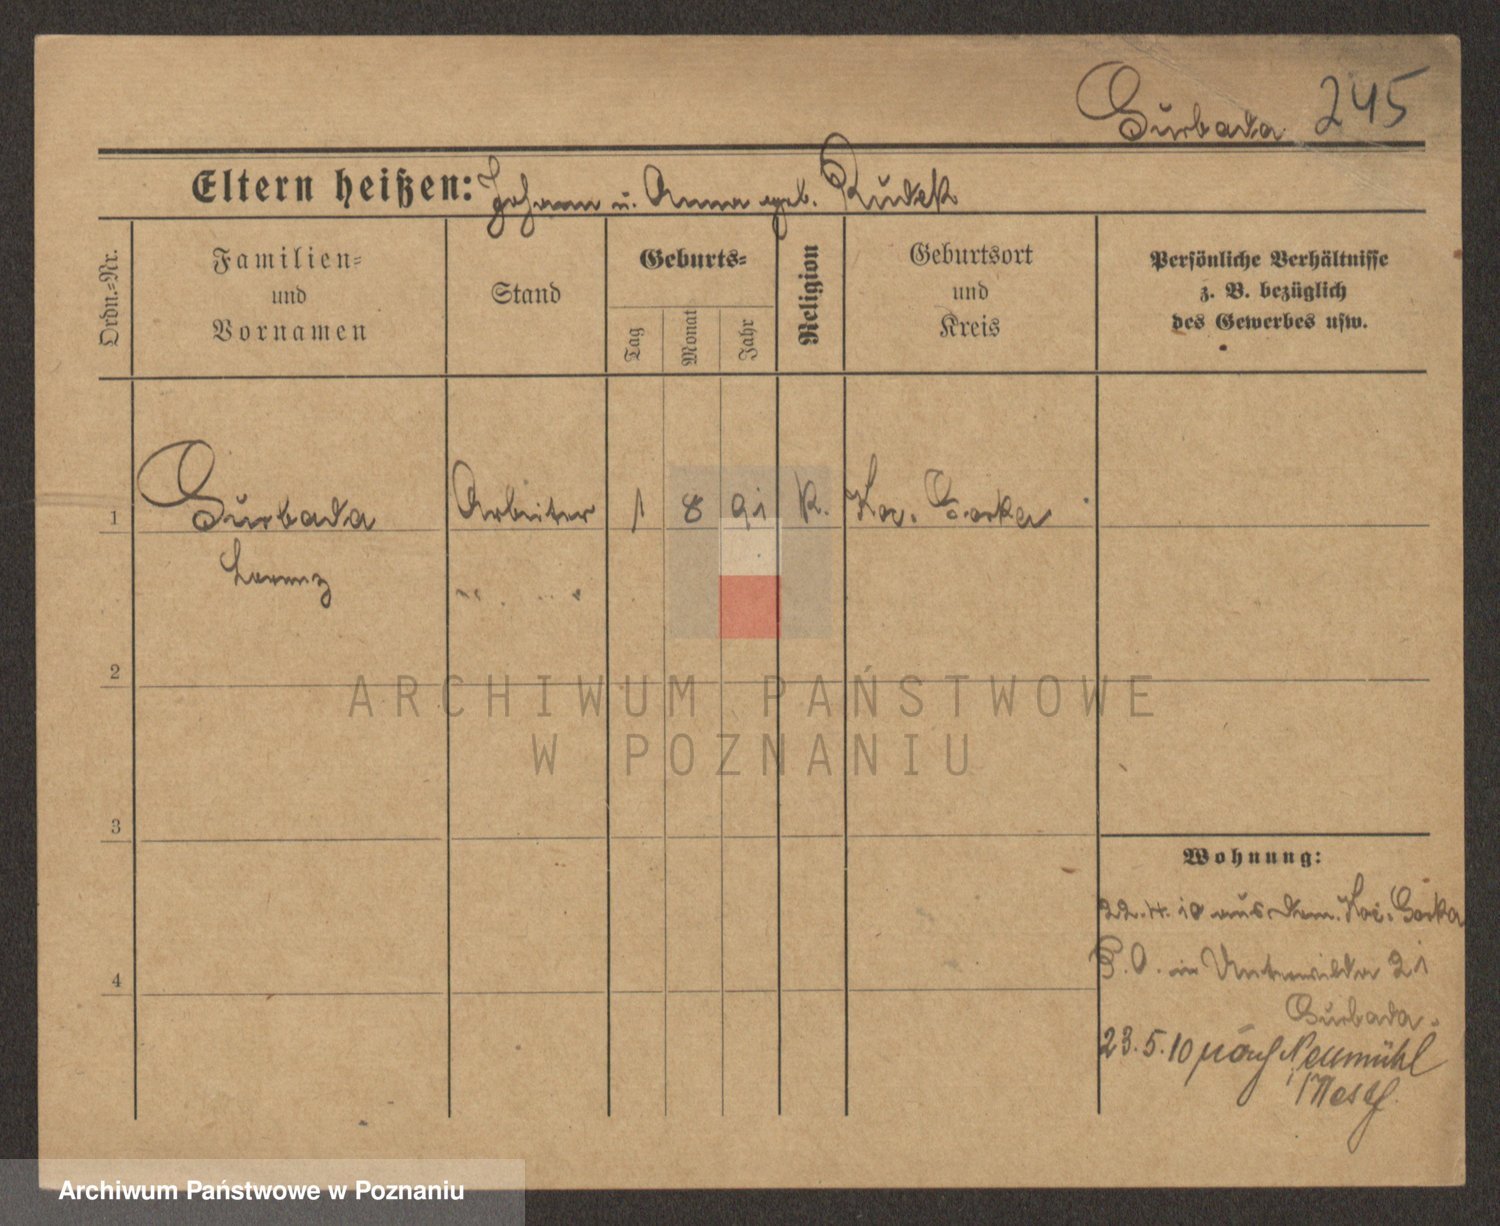 Gurbada 245
Eltern heißen: Johann u. Anna geb. Rudek
Ordn.-Nr.
Familien-
und
Vornamen
Stand
Geburts-
Tag
Monat
Jahr
Religion
Geburtsort
und
Kreis
Persönliche Verhältnisse
z. B. bezüglich
des Gewerbes usw.
1 Gurbada Arbeiter 1 8 91 k. Koc. Gorka
Lorenz
2
3
4
ARCHIWUM PAŃSTWOWE
W POZNANIU
Wohnung:
22.4.10 aus Dom. Koc. Gorka
P. O. in Unterwilda 21
Gurbada.
23.5.10 nach Neumühl
Archiwum Państwowe w Poznaniu